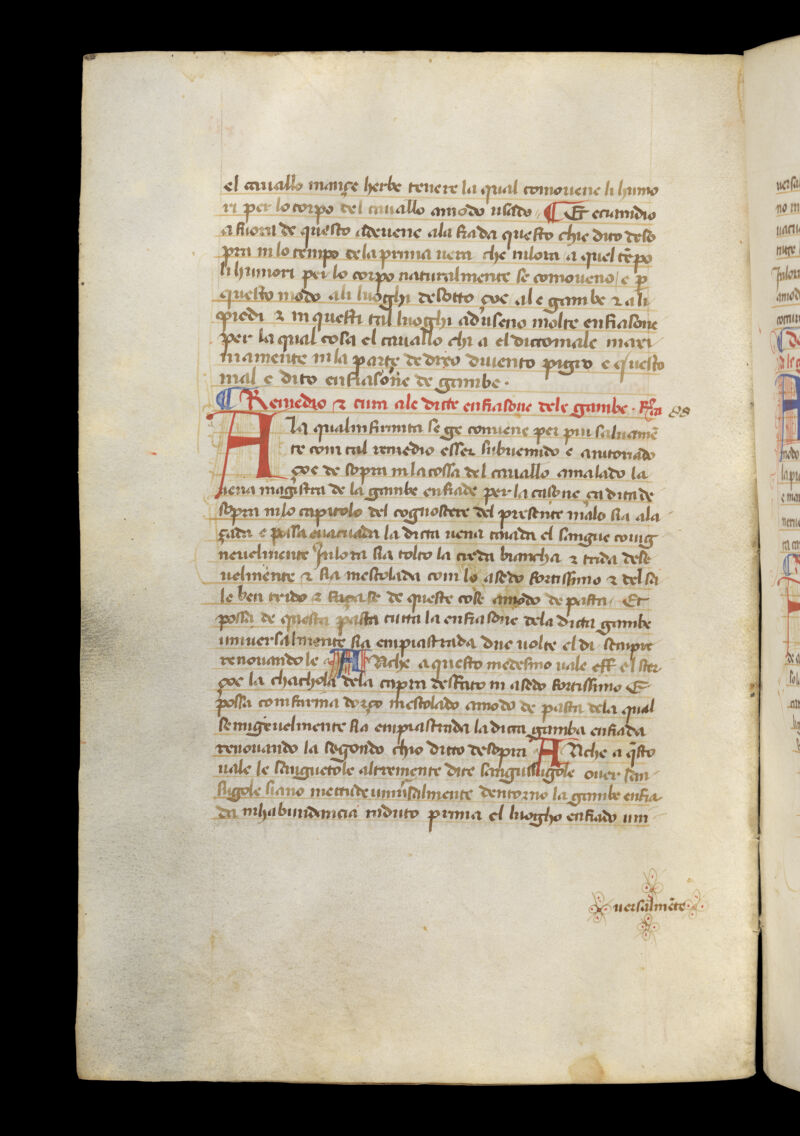 el cauallo mançe herbe tenere la qual comouene li humo
ri per lo corpo del cauallo amodo usado ¶ Et eciamdio
a fiora de questo adeuene ala fiada questo chie dito deso
pra in lo tempo de la prima uera che inlora a quel tẽpo
li humori per lo corpo naturalmente se comoueno e p
questo modo ali luoghi desotto çoe ale gambe & ali
piedi & in questi tal luoghi aduseno molte enfiasone
per la qual cosa el cauallo chi a el dicto male maxi
mamente in la parte dedreo diuento pigro e questo
mal e dito enfiasone de gambe ·
¶ Remedio & cura ale dicte enfiasone dele gambe ·
A la qual infirmita se ge conuene per piu saluamẽ
te com tal remedio esser subuenudo e aiutoriado
çoe de sopra in la cossa del cauallo amalado la
uena magistra de la gambe enfiade per la casone ça dita de
sopra in lo capitolo del cognoscere del presente malo sia ala
çada e possa euacuada la dicta uena tirada el sangue conig
neuelmente Inlora sia tolto la creda biancha & trida dese
uelmente & sia mescolada com lo asedo fortissimo & del sa
le ben trido & façase de queste cose amodo de pasta Et
possa de questa pasta tutta la enfiasone dela dicta gambe
uniuersalmente sia empiastrada due uolte el di sempre
renouando le ANche a questo medesmo uale el ster
çoe la chachola dela capra desfato in asedo fortissimo E
possa com farina dorço mescolado amodo de pasta dela qual
semigeuelmente sia empiastrada la dicta gamba enfiada
renouando la segondo chio ditto desopra ANche a q̃sto
uale le sanguetole altremente dite sangusugole ouer san
sugole siano mettude uniu͂salmente dentorno la gambe enfia
da in habundancia raduto prima el luogho enfiado uni
uersalmẽte